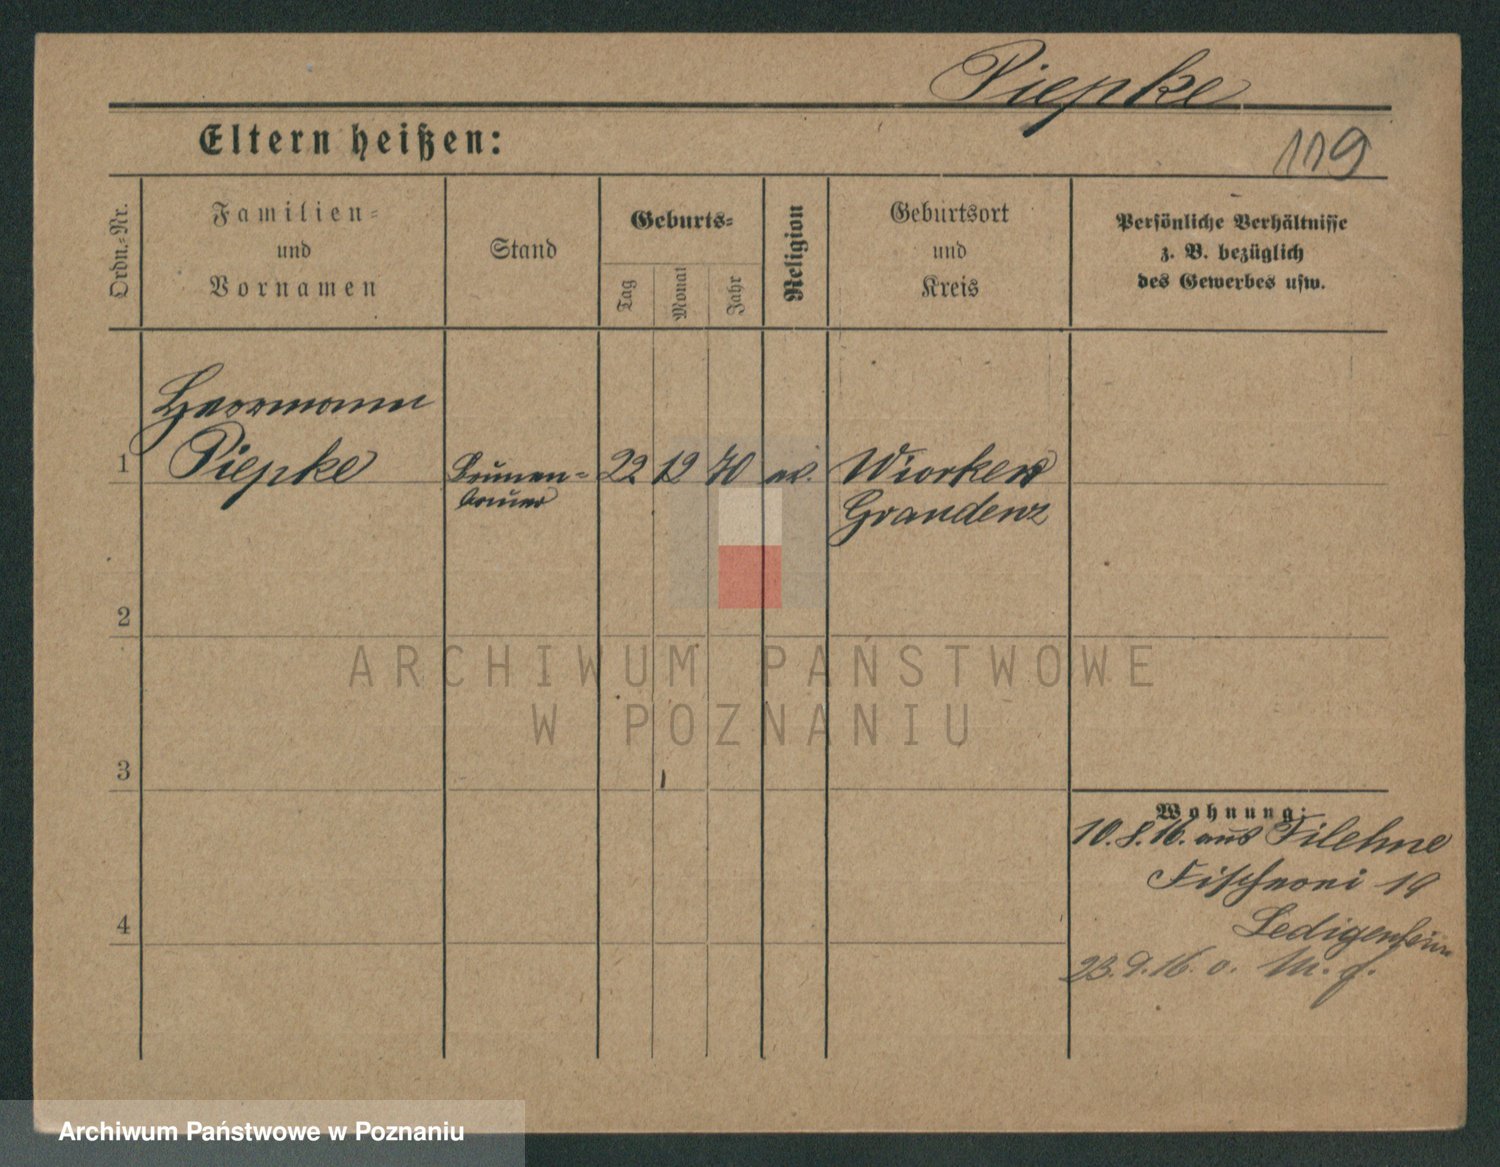 Piepke
119
Eltern heißen:
Ordn.-Nr.
Familien-
und
Vornamen
Stand
Geburts-
Tag
Monat
Jahr
Religion
Geburtsort
und
Kreis
Persönliche Verhältnisse
z. B. bezüglich
des Gewerbes usw.
Herrmann
1 Piepke
Brunnen-
bauer
22 12 70 ev.
Graudenz
2
3
4
ARCHIWUM PAŃSTWOWE
W POZNANIU
Wohnung:
10.8.16. aus Filehne
Fischerei 19
Ledigenheim
23.9.16. o.
Archiwum Państwowe w Poznaniu